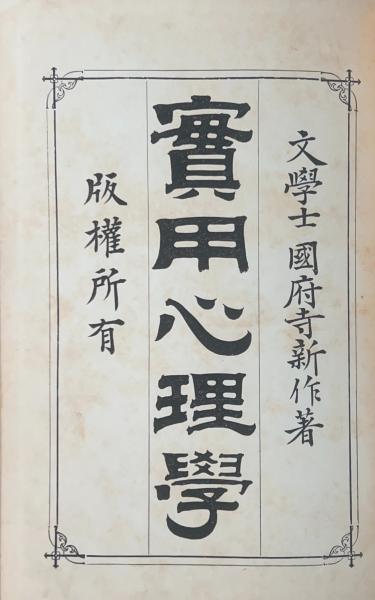 文學士 國府寺新作著
實用心理學
版權所有